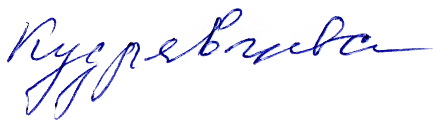 Кудрявцева